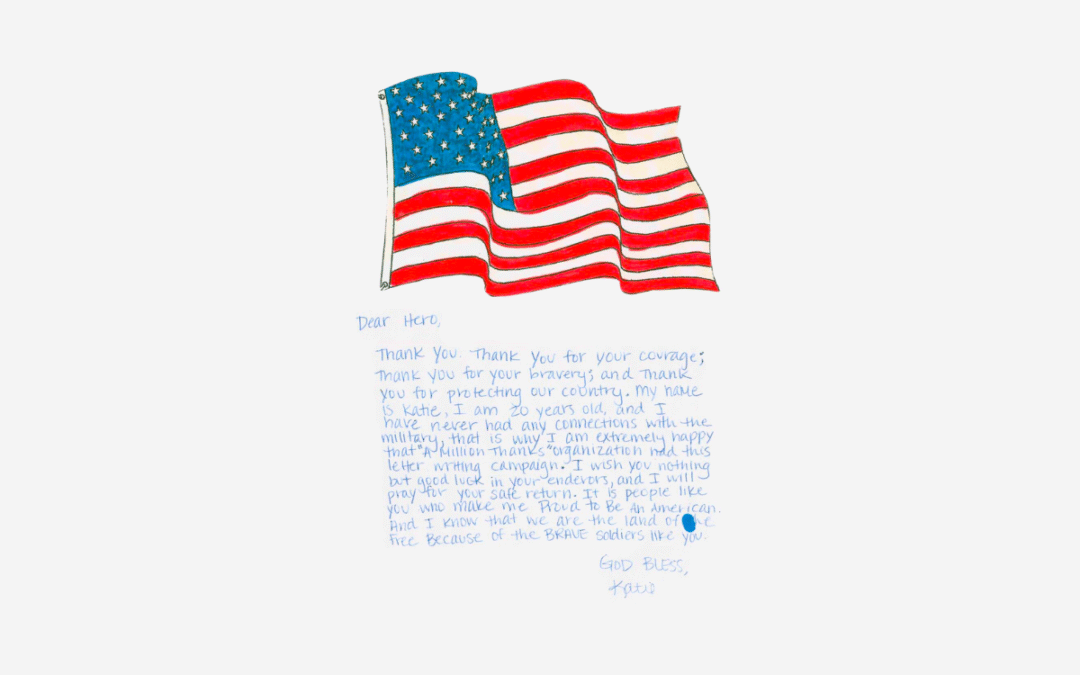 Dear Hero,
Thank you. Thank you for your courage;
Thank you for your bravery; and Thank
you for protecting our country. My name
is Katie, I am 20 years old, and I
have never had any connections with the
military, that is why I am extremely happy
that "A Million Thanks" organization had this
letter writing campaign. I wish you nothing
but good luck in your endevors, and I will
pray for your safe return. It is people like
you who make me Proud to Be An American.
And I know that we are the land of the
Free Because of the BRAVE soldiers like you.
GOD BLESS,
Katie